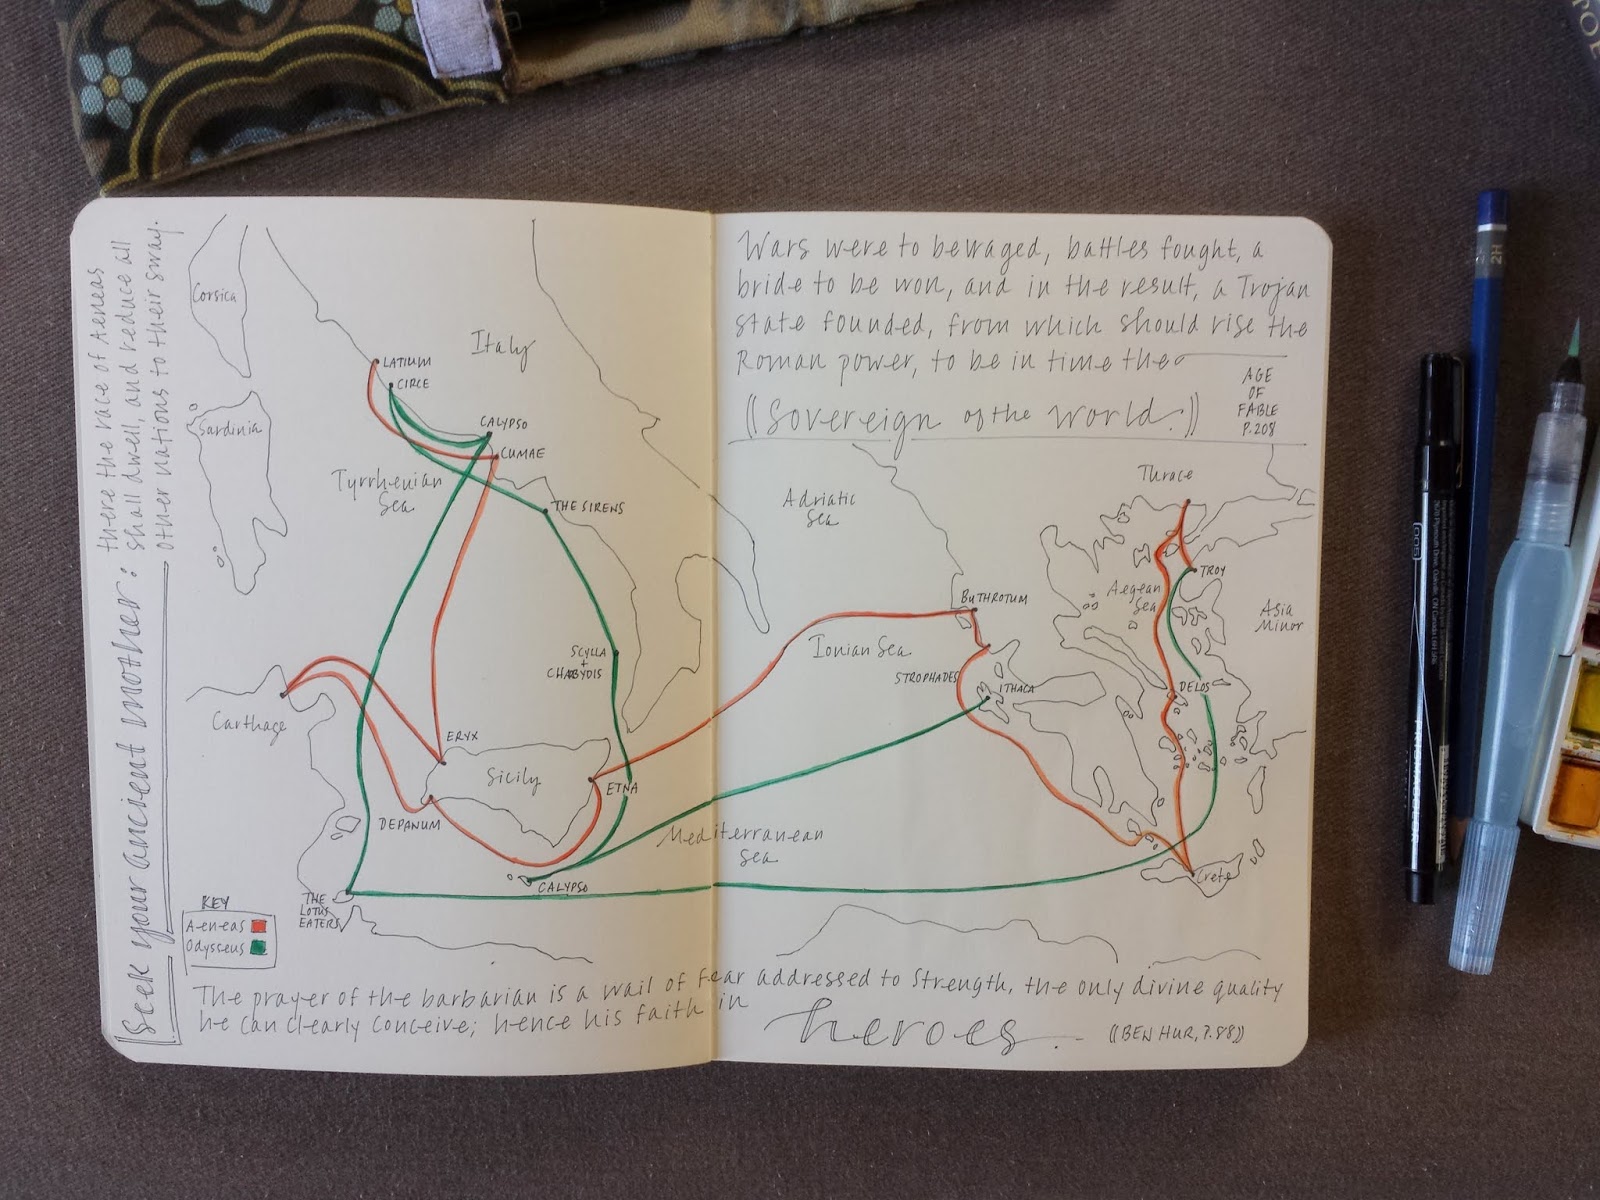 Seek your ancient mother: there the race of Aeneas
shall dwell, and reduce all
other nations to their sway.
Corsica
Sardinia
Italy
LATIUM
CIRCE
CALYPSO
CUMAE
Tyrrhenian
Sea
THE SIRENS
SCYLLA
+
CHARYDIS
Carthage
ERYX
Sicily
ETNA
DEPANUM
CALYPSO
THE
LOTUS
EATERS
KEY
Aeneas
Odysseus
Wars were to be waged, battles fought, a
bride to be won, and in the result, a Trojan
state founded, from which should rise the
Roman power, to be in time the
((Sovereign of the World.))
AGE
OF
FABLE
P.208
Adriatic
Sea
Thrace
TROY
Aegean
Sea
Asia
Minor
BUTHROTUM
Ionian Sea
STROPHADES
ITHACA
DELOS
Mediterranean
Sea
Crete
The prayer of the barbarian is a wail of fear addressed to Strength, the only divine quality
he can clearly conceive; hence his faith in
heroes.
((BEN HUR, P.88))
2H
005